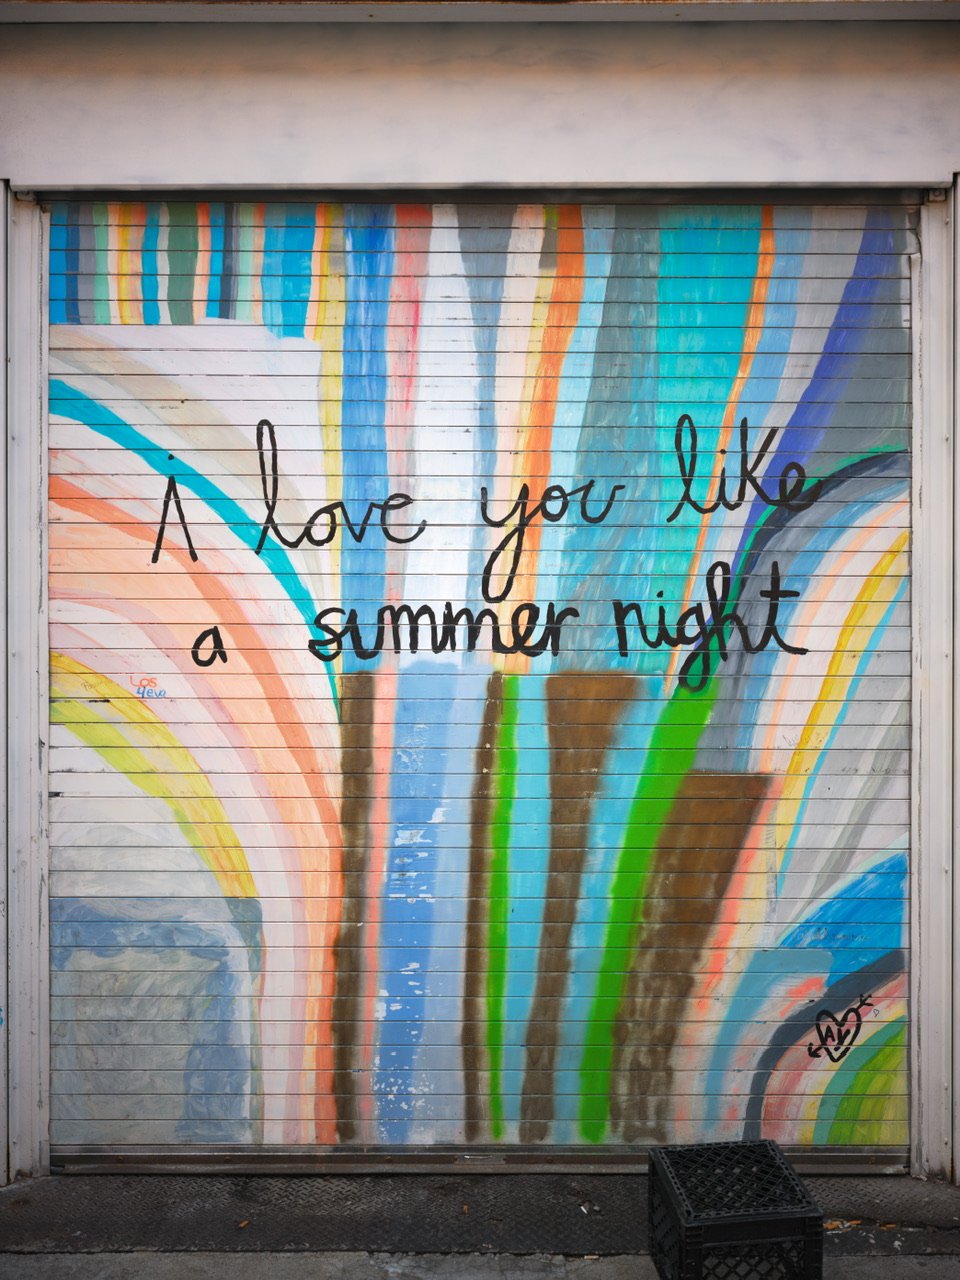 i love you like
a summer night
Los
4eva